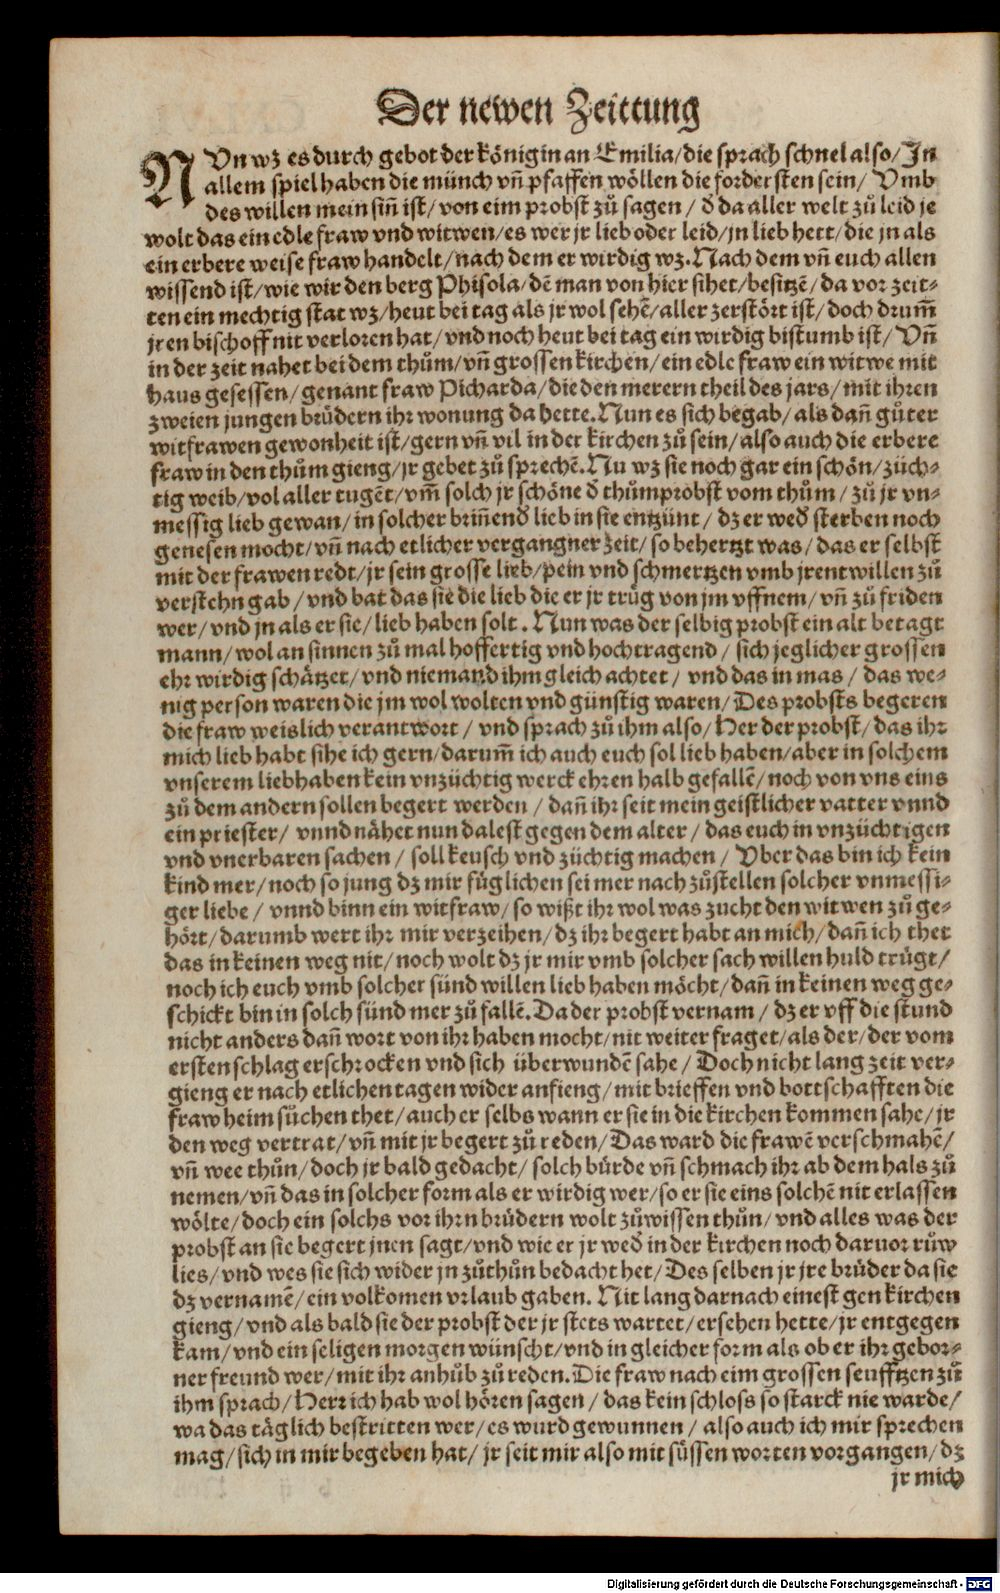 Der newen Zeittung
NVn wz es durch gebot der königin an Emilia/ die sprach schnel also/ In
allem spiel haben die münch vñ pfaffen wöllen die fordersten sein/ Vmb
des willen mein siñ ist/ von eim probst zů sagen / d̕ da aller welt zů leid je
wolt das ein edle fraw vnd witwen/ es wer jr lieb oder leid/ jn lieb hett/ die jn als
ein erbere weise fraw handelt/ nach dem er wirdig wz. Nach dem vñ euch allen
wissend ist/ wie wir den berg Phisola/ dē man von hier sihet/ besitzē/ da vor zeit-
ten ein mechtig stat wz/ heut bei tag als jr wol sehē/ aller zerstört ist/ doch drum̃
jren bischoff nit verloren hat/ vnd noch heut bei tag ein wirdig bistumb ist/ Vñ
in der zeit nahet bei dem thům/ vñ grossen kirchen/ ein edle fraw ein witwe mit
haus gesessen/ genant fraw Picharda/ die den merern theil des jars/ mit ihren
zweien jungen brüdern ihr wonung da hette. Nun es sich begab/ als dañ gůter
witfrawen gewonheit ist/ gern vñ vil in der kirchen zů sein/ also auch die erbere
fraw in den thům gieng/ jr gebet zů sprechē. Nu wz sie noch gar ein schön/ züch-
tig weib/ vol aller tugēt/ vm̃ solch jr schöne d̕ thůmprobst vom thům / zů jr vn-
messig lieb gewan/ in solcher briñend̕ lieb in sie entzünt / dz er wed̕ sterben noch
genesen mocht/ vñ nach etlicher vergangner zeit/ so behertzt was/ das er selbst
mit der frawen redt/ jr sein grosse lieb/ pein vnd schmertzen vmb jrent willen zů
verstehn gab / vnd bat das sie die lieb die er jr trůg von jm vffnem/ vñ zů friden
wer/ vnd jn als er sie/ lieb haben solt . Nun was der selbig probst ein alt betagt
mann/ wol an sinnen zů mal hoffertig vnd hochtragend / sich jeglicher grossen
ehr wirdig schätzet/ vnd niemand ihm gleich achtet / vnd das in mas / das we-
nig person waren die jm wol wolten vnd günstig waren/ Des probsts begeren
die fraw weislich verantwort / vnd sprach zů ihm also/ Her der probst/ das ihr
mich lieb habt sihe ich gern/ darum̃ ich auch euch sol lieb haben/ aber in solchem
vnserem liebhaben kein vnzüchtig werck ehren halb gefallē/ noch von vns eins
zů dem andern sollen begert werden / dañ ihr seit mein geistlicher vatter vnnd
ein priester/ vnnd nähet nun dalest gegen dem alter / das euch in vnzüchtigen
vnd vnerbaren sachen / soll keusch vnd züchtig machen / Vber das bin ich kein
kind mer/ noch so jung dz mir füglichen sei mer nach zůstellen solcher vnmessi-
ger liebe / vnnd binn ein witfraw/ so wißt ihr wol was zucht den witwen zů ge-
hört/ darumb wert ihr mir verzeihen/ dz ihr begert habt an mich/ dañ ich thet
das in keinen weg nit/ noch wolt dz jr mir vmb solcher sach willen huld trügt/
noch ich euch vmb solcher sünd willen lieb haben möcht/ dañ in keinen weg ge-
schickt bin in solch sünd mer zů fallē. Da der probst vernam / dz er vff die stund
nicht anders dañ wort von ihr haben mocht/ nit weiter fraget/ als der/ der vom
ersten schlag erschrocken vnd sich überwundē sahe / Doch nicht lang zeit ver-
gieng er nach etlichen tagen wider anfieng/ mit brieffen vnd bottschafften die
fraw heimsůchen thet/ auch er selbs wann er sie in die kirchen kommen sahe/ jr
den weg vertrat/ vñ mit jr begert zů reden/ Das ward die frawē verschmahē/
vñ wee thůn/ doch jr bald gedacht/ solch bürde vñ schmach ihr ab dem hals zů
nemen/ vñ das in solcher form als er wirdig wer/ so er sie eins solchē nit erlassen
wölte/ doch ein solchs vor ihrn brüdern wolt zůwissen thůn/ vnd alles was der
probst an sie begert jnen sagt/ vnd wie er jr wed̕ in der kirchen noch daruor růw
lies/ vnd wes sie sich wider jn zůthůn bedacht het/ Des selben jr jre brüder da sie
dz vernamē/ ein volkomen vrlaub gaben. Nit lang darnach einest gen kirchen
gieng/ vnd als bald sie der probst der jr stets wartet/ ersehen hette/ jr entgegen
kam/ vnd ein seligen morgen wünscht/ vnd in gleicher form als ob er ihr gebor-
ner freund wer/ mit ihr anhůb zů reden. Die fraw nach eim grossen seufftzen zů
ihm sprach/ Herr ich hab wol hören sagen / das kein schloss so starck nie warde/
wa das täglich bestritten wer/ es wurd gewunnen / also auch ich mir sprechen
mag/ sich in mir begeben hat/ jr seit mir also mit süssen worten vorgangen/ dz
jr mich
Digitalisierung gefördert durch die Deutsche Forschungsgemeinschaft - DFG